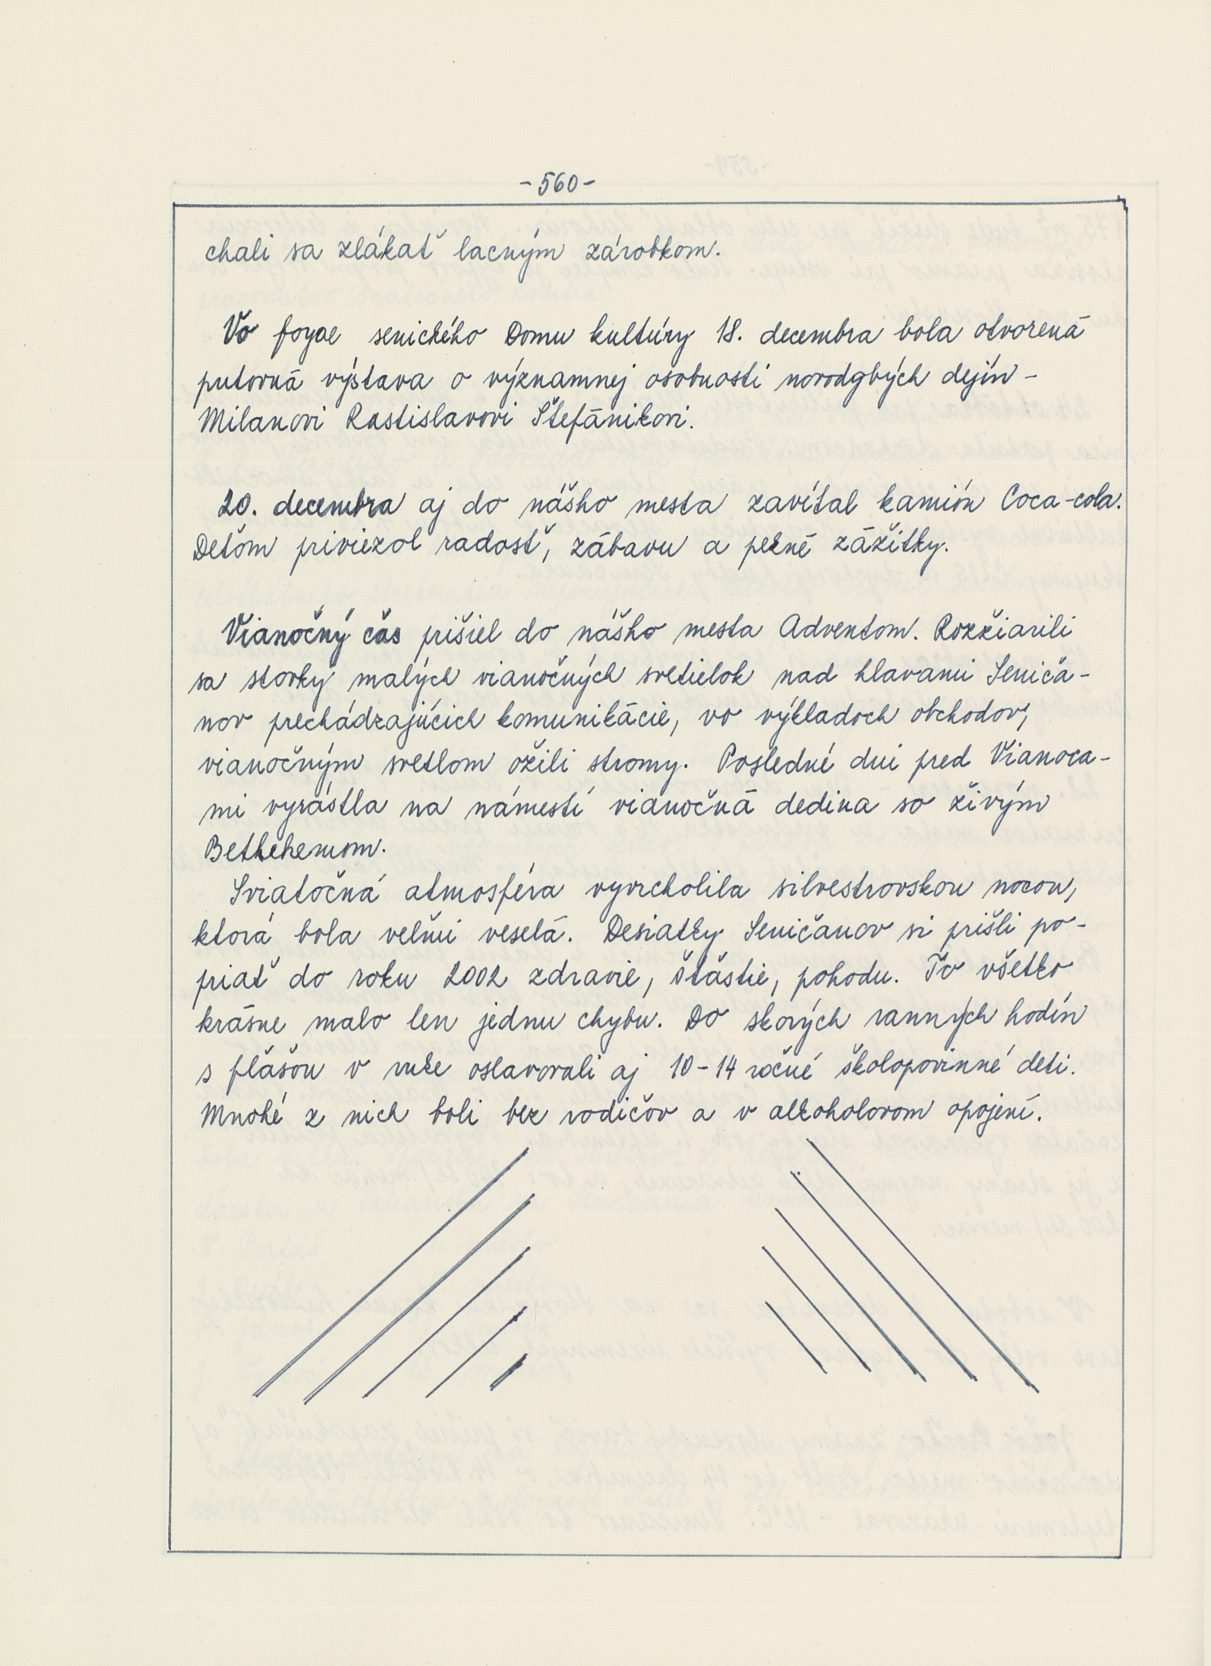 -560-
chali sa zlákať lacným zárobkom.
Vo foyae senického Domu kultúry 18. decembra bola otvorená
putovná výstava o významnej osobnosti národných dejín -
Milanovi Rastislavovi Štefánikovi.
20. decembra aj do nášho mesta zavítal kamión Coca-cola.
Deťom priviezol radosť, zábavu a pekné zážitky.
Vianočný čas prišiel do nášho mesta Adventom. Rozžiarili
sa stovky malých vianočných svetielok nad hlavami Seniča-
nov prechádzajúcich komunikácie, vo výkladoch obchodov,
vianočným svetlom ožili stromy. Posledné dni pred Vianoca-
mi vyrástla na námestí vianočná dedina so živým
Bethehemom.
Sviatočná atmosféra vyvrcholila silvestrovskou nocou,
ktorá bola veľmi veselá. Desiatky Seničanov si prišli po-
priať do roku 2002 zdravie, štástie, pohodu. To všetko
krásne malo len jednu chybu. Do skorých ranných hodín
s fľašou v ruke oslavovali aj 10-14 ročné školopovinné deti.
Mnohé z nich boli bez rodičov a v alkoholovom opojení.